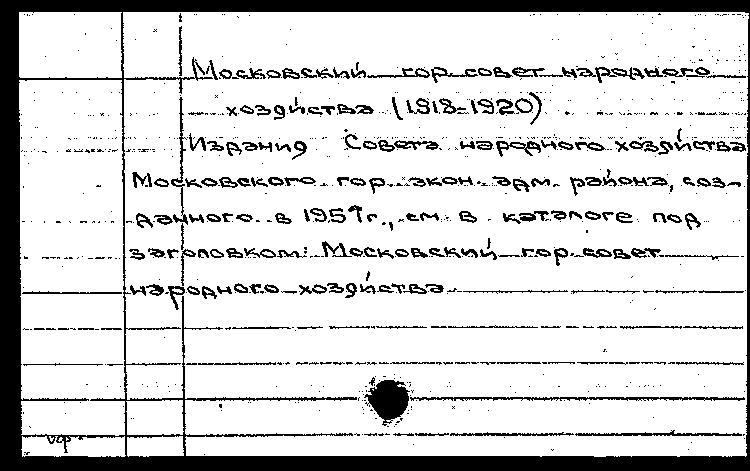 Московский гор. совет народного
хозяйства (1918-1920)
Издания Совета народного хозяйства
Московского гор. экон. адм. района, соз-
данного в 1957г., см. в каталоге под
заголовком: Московский гор. совет
народного хозяйства